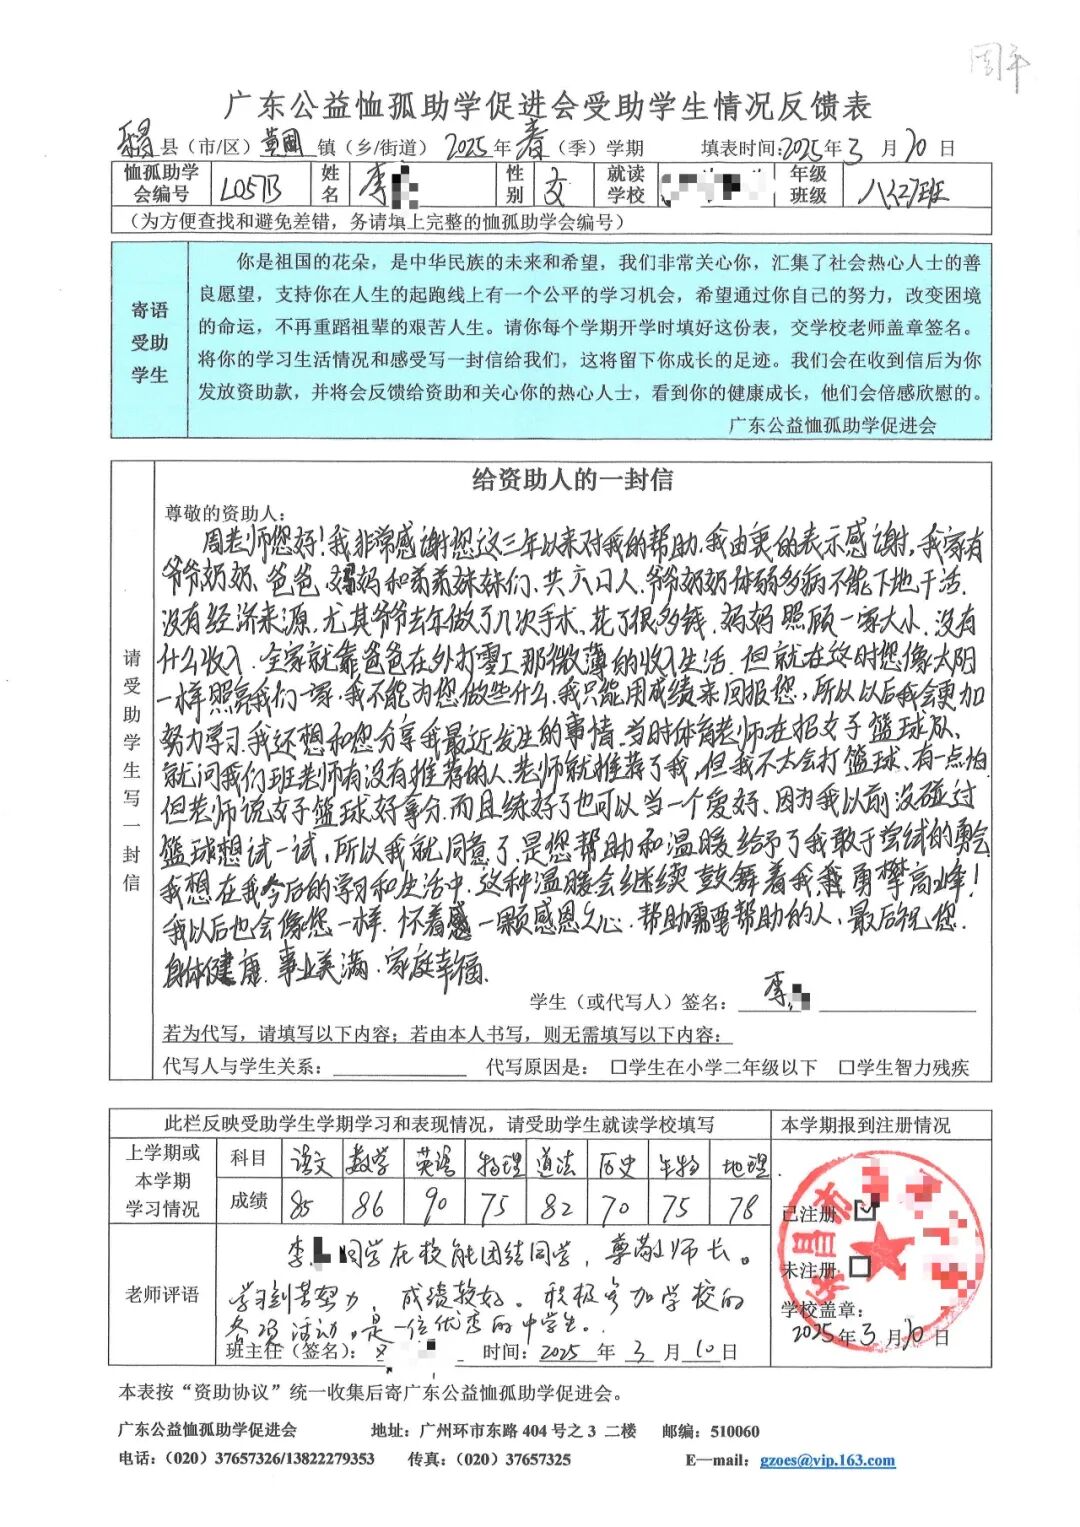 周平
广东公益恤孤助学促进会受助学生情况反馈表
乐昌县（市/区）黄圃镇（乡/街道）2025年春（季）学期 填表时间:2025年3月10日
恤孤助学会编号 L057B 姓名 李 性别 女 就读学校 年级班级 八(2)班
（为方便查找和避免差错，务请填上完整的恤孤助学会编号）
寄语受助学生
你是祖国的花朵，是中华民族的未来和希望，我们非常关心你，汇集了社会热心人士的善
良愿望，支持你在人生的起跑线上有一个公平的学习机会，希望通过你自己的努力，改变困境
的命运，不再重蹈祖辈的艰苦人生。请你每个学期开学时填好这份表，交学校老师盖章签名。
将你的学习生活情况和感受写一封信给我们，这将留下你成长的足迹。我们会在收到信后为你
发放资助款，并将会反馈给资助和关心你的热心人士，看到你的健康成长，他们会倍感欣慰的。
广东公益恤孤助学促进会
请受助学生写一封信
给资助人的一封信
尊敬的资助人：
周老师您好!我非常感谢您这三年以来对我的帮助.我由衷的表示感谢,我家有
爷爷奶奶、爸爸、妈妈和弟弟妹妹们、共六口人.爷爷奶奶体弱多病不能下地干活.
没有经济来源.尤其爷爷去年做了几次手术、花了很多钱.妈妈照顾一家大小.没有
什么收入.全家就靠爸爸在外打零工那微薄的收入生活.但就在这时您像太阳
一样照亮我们一家.我不能为您做些什么.我只能用成绩来回报您,所以以后我会更加
努力学习.我还想和您分享我最近发生的事情.当时体育老师在招女子篮球队、
就问我们班老师有没有推荐的人.老师就推荐了我,但我不太会打篮球、有一点怕.
但老师说女子篮球好拿分.而且练好了也可以当一个爱好、因为我以前没碰过
篮球想试一试,所以我就同意了.是您帮助和温暖给予了我敢于尝试的勇气
我想在我今后的学习和生活中.这种温暖会继续鼓舞着我勇攀高峰！
我以后也会像您一样.怀着一颗感恩之心.帮助需要帮助的人、最后祝您.
身体健康.事业美满.家庭幸福.
学生（或代写人）签名：李
若为代写，请填写以下内容；若由本人书写，则无需填写以下内容：
代写人与学生关系： 代写原因是： □学生在小学二年级以下 □学生智力残疾
此栏反映受助学生学期学习和表现情况，请受助学生就读学校填写 本学期报到注册情况
上学期或本学期学习情况
科目 语文 数学 英语 物理 道法 历史 生物 地理
成绩 85 86 90 75 82 70 75 78
老师评语
李 同学在校能团结同学，尊敬师长。
学习刻苦努力，成绩较好。积极参加学校的
各项活动。是一位优秀的中学生。
班主任（签名）： 时间：2025年3月10日
乐昌市
已注册 ☑
未注册 □
学校盖章：
2025年3月10日
本表按“资助协议”统一收集后寄广东公益恤孤助学促进会。
广东公益恤孤助学促进会 地址：广州环市东路404号之3 二楼 邮编：510060
电话：（020）37657326/13822279353 传真：（020）37657325 E—mail：gzoes@vip.163.com